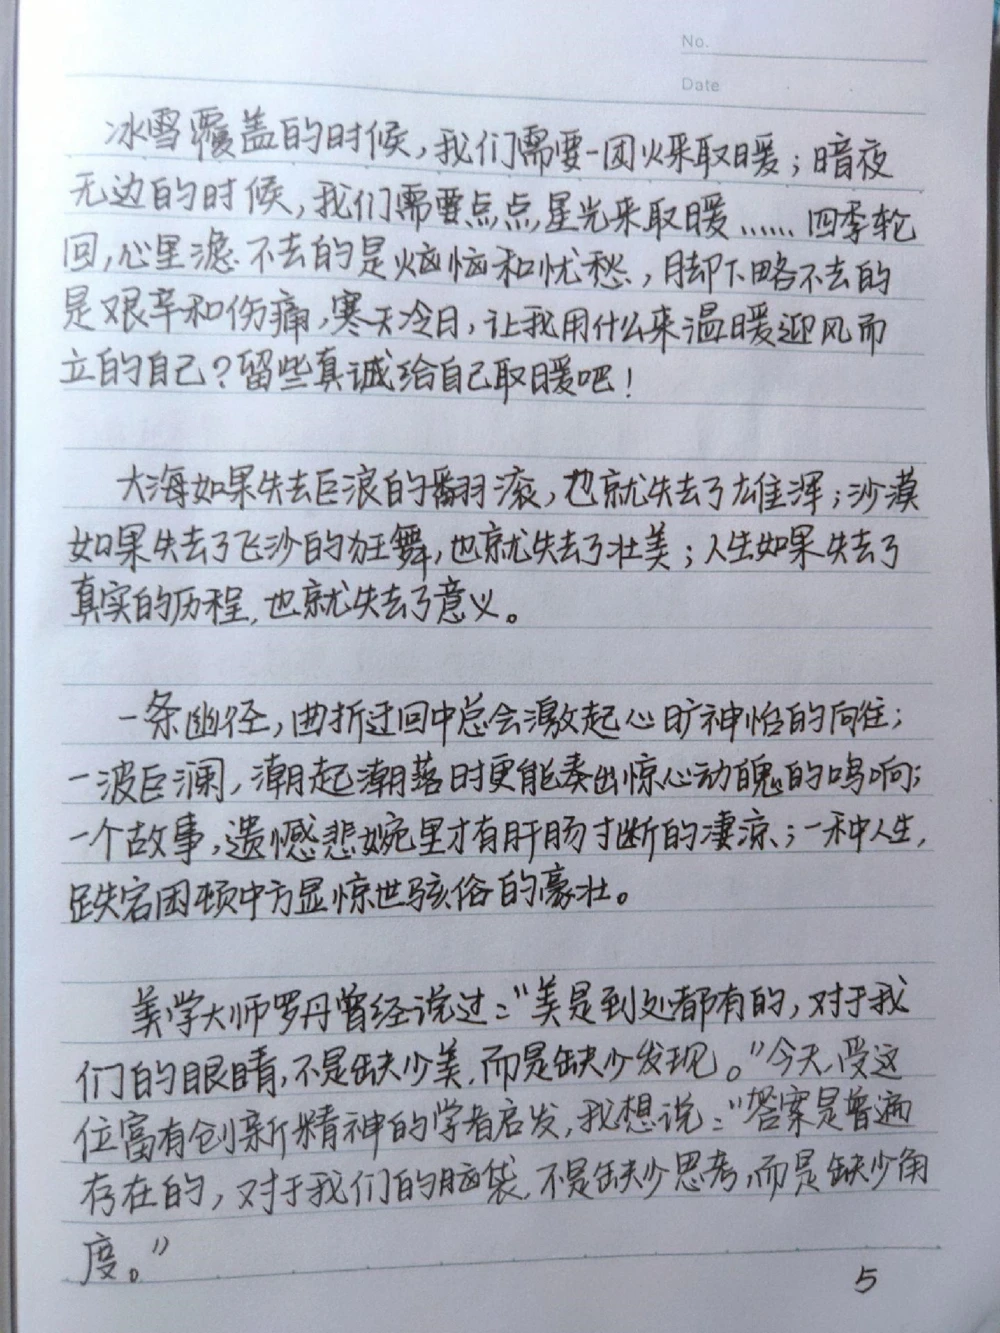 No.
Date
冰雪覆盖的时候,我们需要一团火来取暖;暗夜
无边的时候,我们需要点点星光来取暖……四季轮
回,心里滤不去的是烦恼和忧愁,脚下略不去的
是艰辛和伤痛,寒天冷日,让我用什么来温暖迎风而
立的自己?留些真诚给自己取暖吧!
大海如果失去巨浪的翻滚,也就失去了雄浑;沙漠
如果失去了飞沙的狂舞,也就失去了壮美;人生如果失去了
真实的历程,也就失去了意义。
一条幽径,曲折迂回中总会激起心旷神怡的向往;
一波巨澜,潮起潮落时更能奏出惊心动魄的鸣响;
一个故事,遗憾悲婉里才有肝肠寸断的凄凉;一种人生,
跌宕困顿中方显惊世骇俗的豪壮。
美学大师罗丹曾经说过:"美是到处都有的,对于我
们的眼睛,不是缺少美,而是缺少发现。"今天,受这
位富有创新精神的学者启发,我想说:"答案是普遍
存在的,对于我们的脑袋,不是缺少思考,而是缺少角
度。"
5